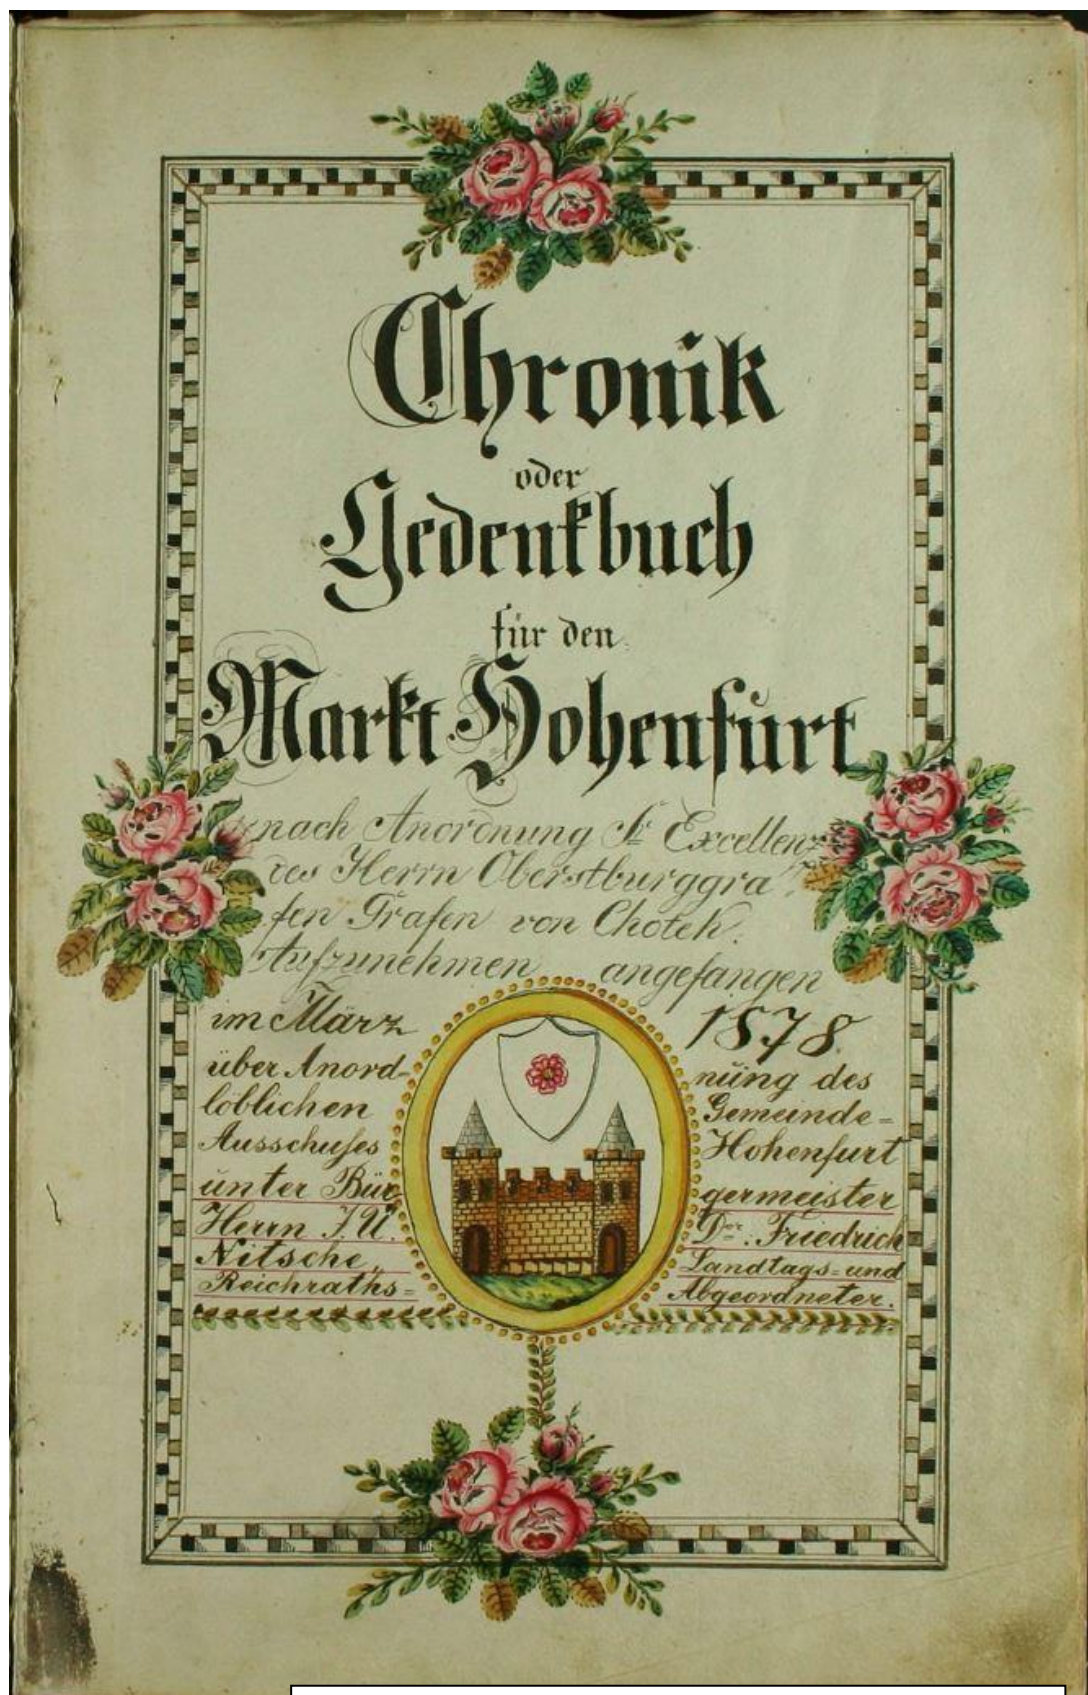 Chronik
oder
Gedenkbuch
für den
Markt Hohenfurt
nach Anordnung Sr Excellenz
des Herrn Oberstburggra
fen Grafen von Chotek.
Aufzunehmen angefangen
im März 1878.
über Anord- nung des
löblichen Gemeinde=
Ausschußes Hohenfurt
unter Bür germeister
Herrn J. U. Dor. Friedrich
Nitsche, Landtags= und
Reichraths= Abgeordneter.